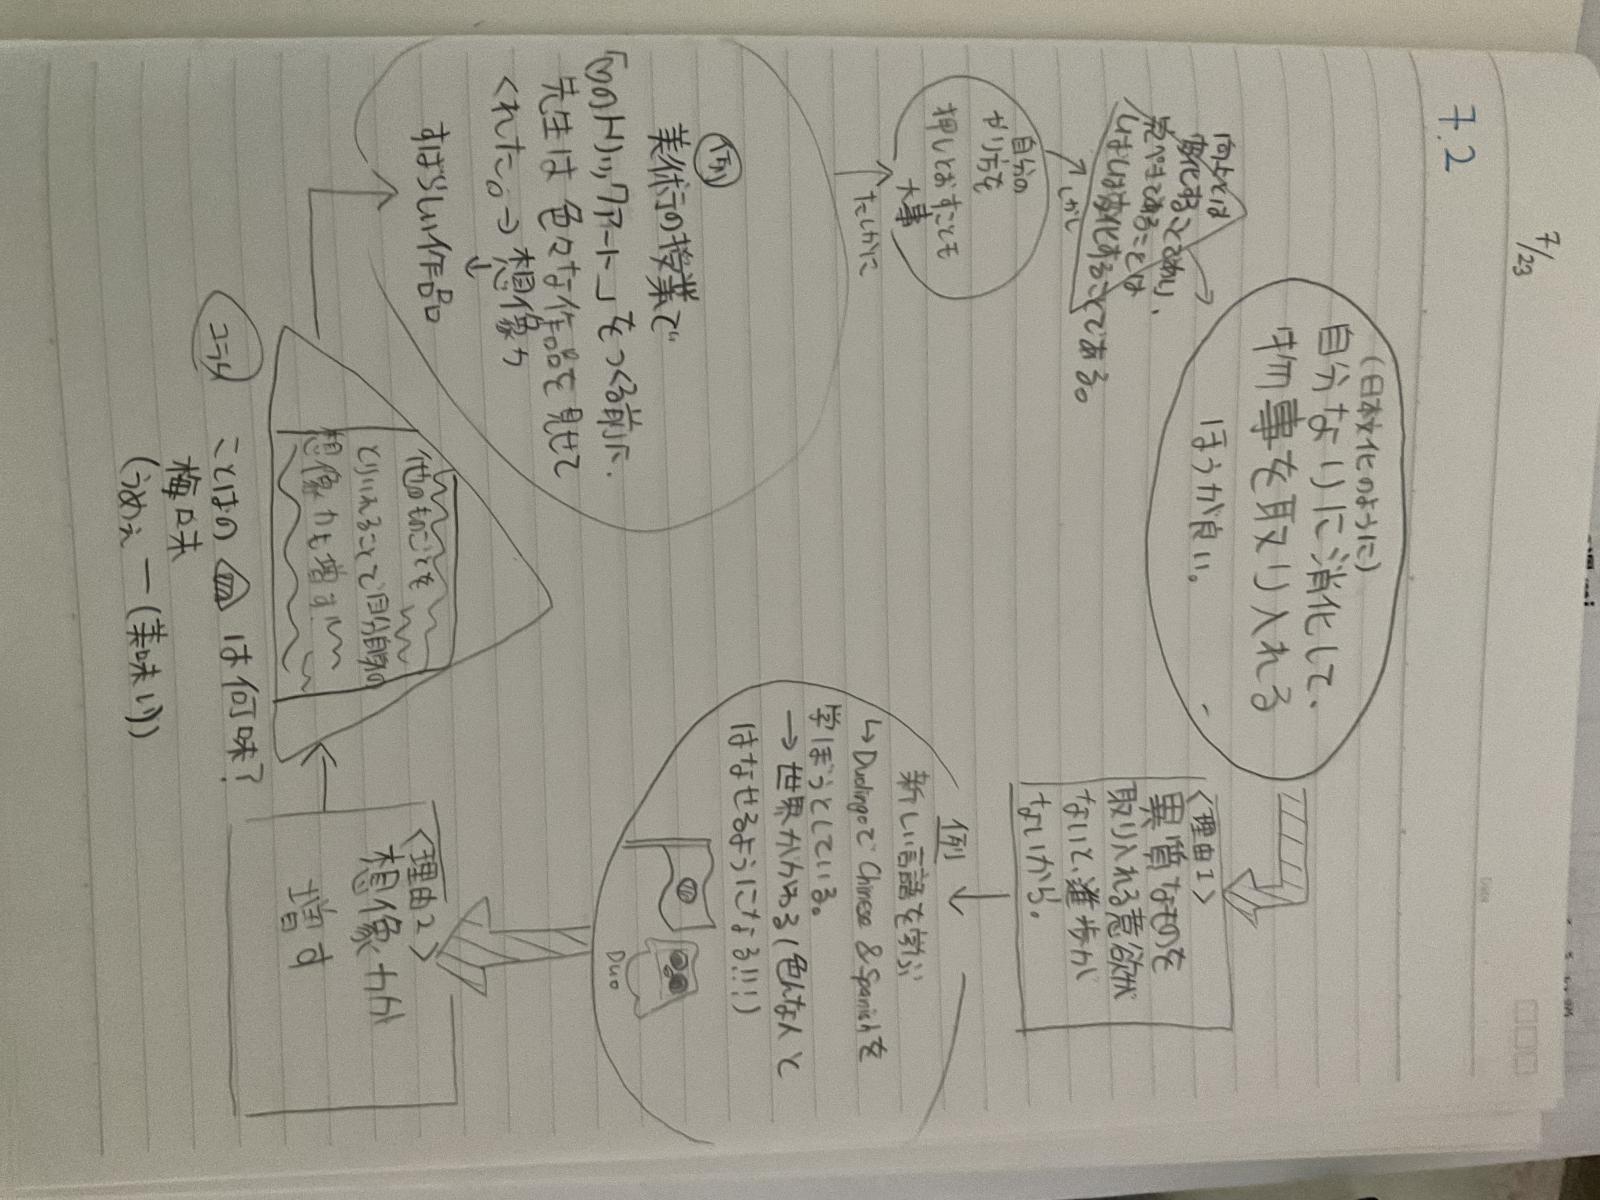 7/23
7.2
(日本文化のように)
自分なりに消化して、
物事を取り入れる
ほうが良い。
<理由1>
異質なものを
取り入れる意欲が
ないと進歩が
ないから。
例
新しい言語を学ぶ
↳DuolingoでChinese & Spanishを
学ぼうとしている。
→世界がかわる(色んな人と
はなせるようになる!!!!)
Duo
<理由2>
想像力が
増す
他のものごとを
とりいれることで自分自身の
想像力も増す
例
美術の授業で
「のトリックアート」をつくる前に、
先生は色々な作品を見せて
くれた。→想像力
↓
すばらしい作品
たしかに
自分の
やり方を
押しとおすことも
大事
しかし
向上とは
変化することであり、
完ぺきであることは、
しばしば変化することである。
コラム
ことばの は何味?
梅口味
(うめぇー(美味い))